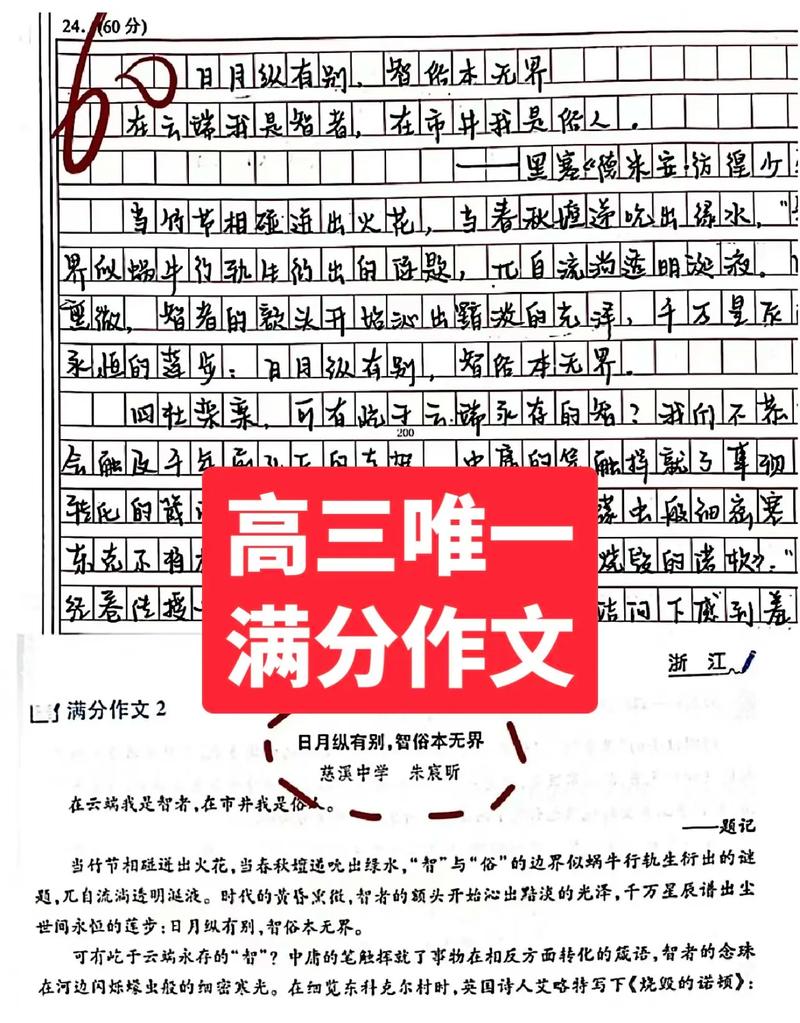 24. (60分)
60
日月纵有别，智俗本无界
在云端我是智者，在市井我是俗人。
——黑塞《德米安:彷徨少
当竹节相碰迸出火花，当春秋壇递吮出绿水，"
界似蜗牛行轨生衍出的谜题，兀自流淌透明涎液。
黑微，智者的额头开始沁出黯淡的光泽，千万星辰
永恒的莲步：日月纵有别，智俗本无界。
四壮栾栾，可有屹于云端永存的智？我们不恭
200
会触及千年
中庸的笔触挥就了事物
转化的箴
蠓虫般细密寒
东克
烧毁的诺顿》："
经卷传授
诘问下感到羞
高三唯一
满分作文
浙江
满分作文2
日月纵有别,智俗本无界
慈溪中学 朱宸昕
在云端我是智者,在市井我是俗人。
——题记
当竹节相碰迸出火花,当春秋壇递吮出绿水,“智”与“俗”的边界似蜗牛行轨生衍出的谜
题,兀自流淌透明涎液。时代的黄昏黑微,智者的额头开始沁出黯淡的光泽,千万星辰谱出尘
世间永恒的莲步:日月纵有别,智俗本无界。
可有屹于云端永存的“智”? 中庸的笔触挥就了事物在相反方面转化的箴语,智者的念珠
在河边闪烁蠓虫般的细密寒光。在细览东科克尔村时,英国诗人艾略特写下《烧毁的诺顿》: